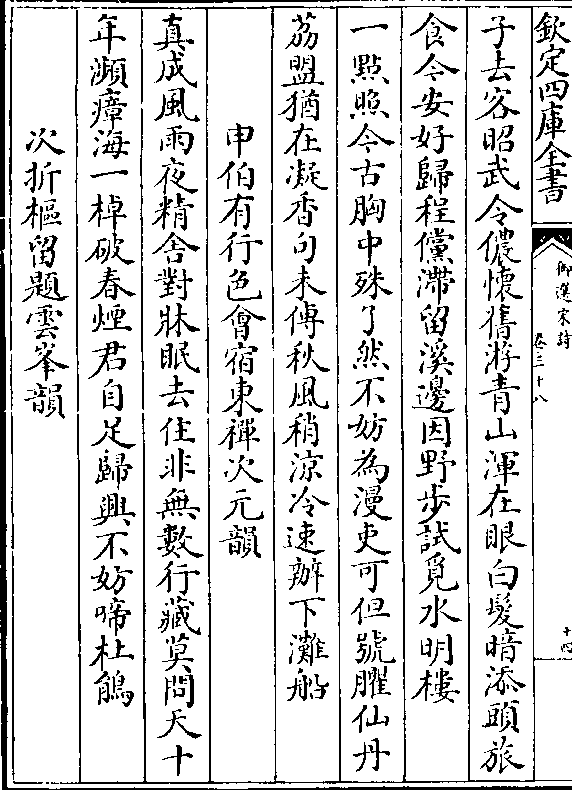 欽定四庫全書
御選宋詩
卷三十八
十四
子去客昭武令儂懷舊游青山渾在眼白髮暗添頭旅
食今安好歸程儻滯留溪邊因野步試覓水明樓
一點照今古胸中殊了然不妨為漫吏可但號臞仙丹
荔盟猶在凝香句未傳秋風稍涼冷速辦下灘船
申伯有行色會宿東禪次元韻
真成風雨夜精舍對牀眠去住非無數行藏莫問天十
年瀕瘴海一棹破春煙君自足歸興不妨啼杜鵑
次折樞留題雲峯韻